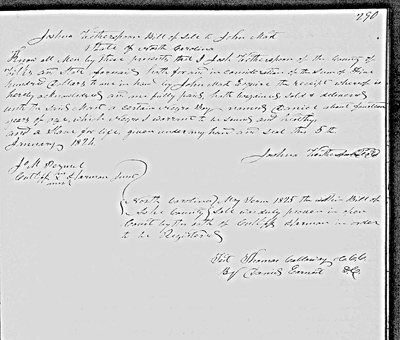 290
Joshua Wetherspoon Bill of Sale to John Mast
State of North Carolina
Know all Men by these presents that I Josh Wetherspoon of the County of
and State foresaid hath for and in consideration of the Sum of three
hundred dollars to me in hand by John Mast the receipt whereof is
hereby acknowledged am me fully paid, hath bargained sold & delivered
with the said Mast a certain Negro Boy named about fourteen
years of age, which negro I warrant to be sound and healthy
and a Slave for life, given under my hand and seal this 5th
January 1824.
Joshua
North Carolina May Term 1825 the within Bill of
Ashe County Sale was duly proven in open
Court by the oath of Cutliff Harman in order
to be Registered
Test Thomas Calloway C.C.C.
By Daniel Earnest D.C.